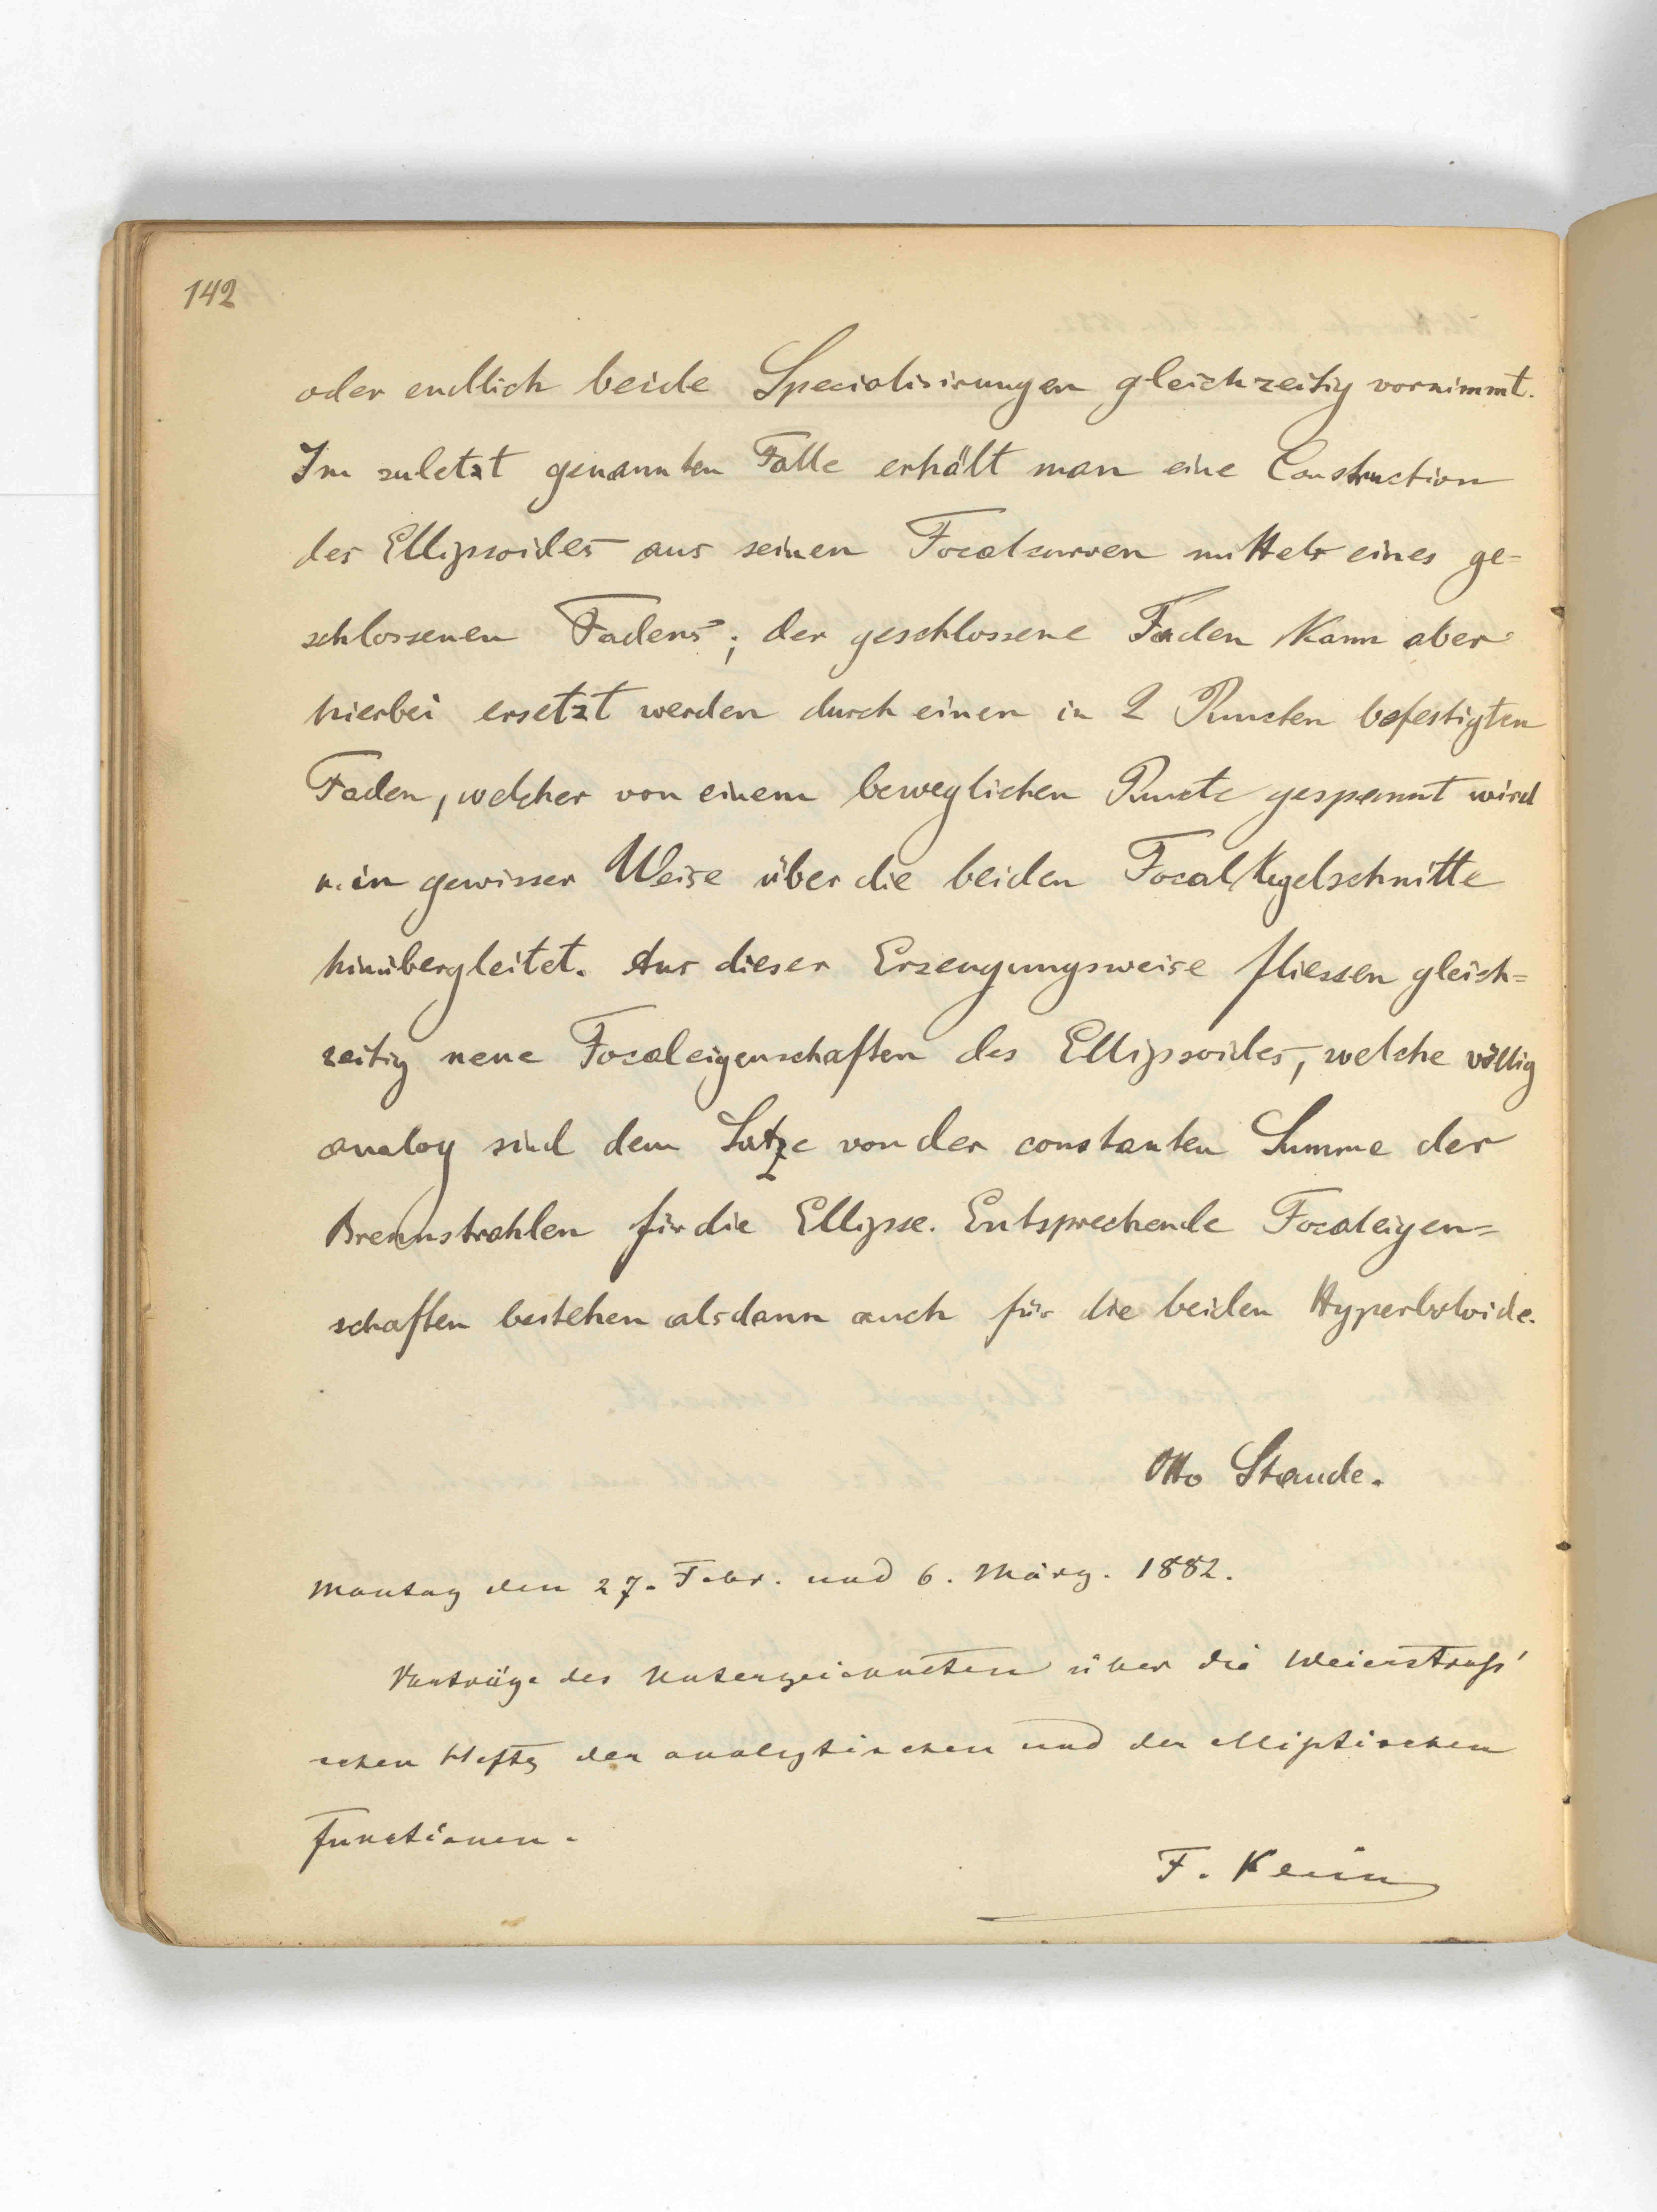 142
oder endlich beide Specialisirungen gleichzeitig vornimmt.
Im zuletzt genannten Falle erhält man eine Construction
des Ellipsoides aus seinen Focalcurven mittels eines ge-
schlossenen Fadens; der geschlossene Faden kann aber
hierbei ersetzt werden durch einen in 2 Puncten befestigten
Faden, welcher von einem beweglichen Puncte gespannt wird
u. in gewisser Weise über die beiden Focalkegelschnitte
hinübergleitet. Aus dieser Erzeugungsweise fliessen gleich=
zeitig neue Focaleigenschaften des Ellipsoides, welche völlig
analog sind dem Satze von der constanten Summe der
Brennstrahlen für die Ellipse. Entsprechende Focaleigen=
schaften bestehen alsdann auch für die beiden Hyperboloide.
Otto Staude.
Montag den 27. Febr. und 6. März. 1882.
Vorträge des Unterzeichneten über die Weierstraß'
schen Hefte der analytischen und der elliptischen
Functionen.
F. Klein